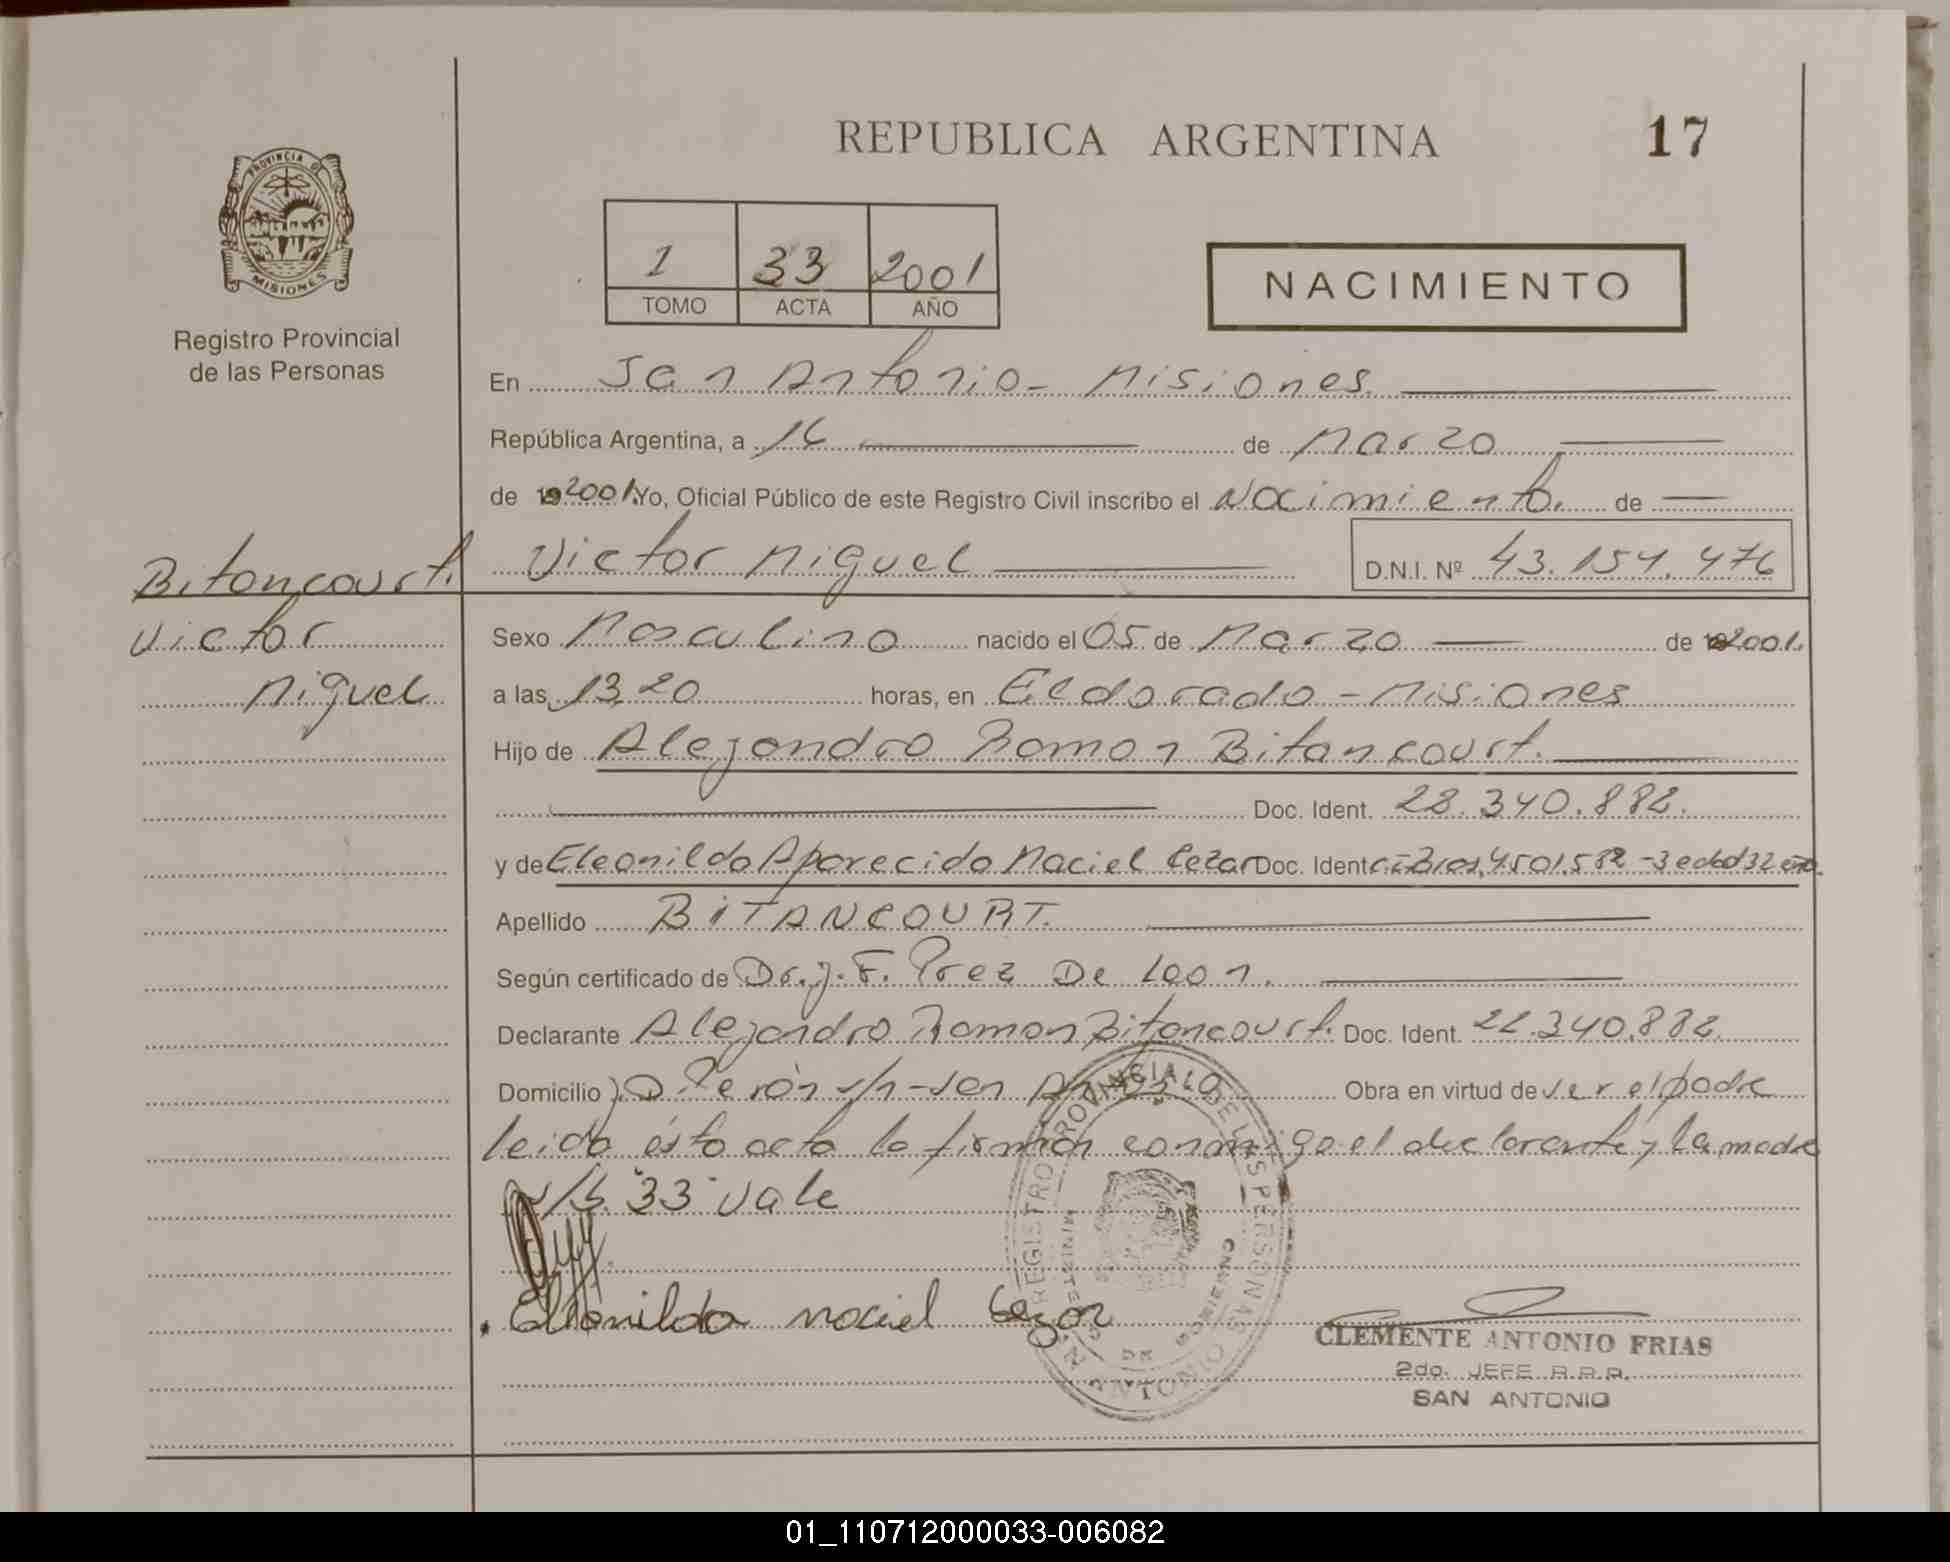 REPUBLICA ARGENTINA
17
PROVINCIA DE
MISIONES
Registro Provincial
de las Personas
1 33 2001
TOMO ACTA AÑO
NACIMIENTO
En San Antonio - Misiones
República Argentina, a 16 de Marzo
de 2001. Yo, Oficial Público de este Registro Civil inscribo el Nacimiento. de
Victor Miguel D.N.I. Nº 43.154.476
Bitancourt.
Victor
Miguel
Sexo Masculino nacido el 05 de Marzo de 2001.
a las 13,20 horas, en Eldorado - Misiones
Hijo de Alejandro Ramon Bitancourt.
Doc. Ident. 22.340.882.
y de Eleonilda Aparecida Maciel Cezar Doc. Ident. 4.501.582-3 edad 32 años.
Apellido BITANCOURT.
Según certificado de Dr. J. F. Prez De Leon.
Declarante Alejandro Ramon Bitancourt. Doc. Ident. 22.340.882.
Domicilio J. D. Perón s/n - San Antonio Obra en virtud de ser el padre
leida ésta acta la firman conmigo el declarante y la madre
s/b. 33 vale
Elleonilda maciel Cezar
REGISTRO PROVINCIAL DE LAS PERSONAS
MINISTERIO DE GOBIERNO
SAN ANTONIO
CLEMENTE ANTONIO FRIAS
2do. JEFE R.P.P.
SAN ANTONIO
01_110712000033-006082